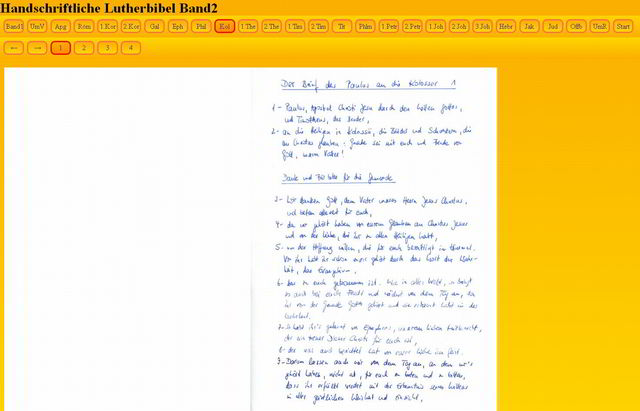 Handschriftliche Lutherbibel Band2
Band1 UmV Apg Röm 1.Kor 2.Kor Gal Eph Phil Kol 1.The 2.The 1.Tim 2.Tim Tit Phlm 1.Petr 2.Petr 1.Joh 2.Joh 3.Joh Hebr Jak Jud Offb UmR Start
← → 1 2 3 4
Der Brief des Paulus an die Kolosser 1
1 - Paulus, Apostel Christi Jesu durch den Willen Gottes,
und Timotheus, der Bruder,
2 - an die Heiligen in Kolossä, die Brüder und Schwestern, die
an Christus glauben: Gnade sei mit euch und Friede von
Gott, unserm Vater!
Dank und Bitte für die Gemeinde
3 - Wir danken Gott, dem Vater unseres Herrn Jesus Christus,
und beten allezeit für euch,
4 - da wir gehört haben von eurem Glauben an Christus Jesus
und von der Liebe, die ihr zu allen Heiligen habt,
5 - um der Hoffnung willen, die für euch bereitliegt im Himmel.
Von ihr habt ihr schon zuvor gehört durch das Wort der Wahr-
heit, das Evangelium,
6 - das zu euch gekommen ist. Wie in aller Welt, so bringt
es auch bei euch Frucht und wächst von dem Tag an, da
ihr von der Gnade Gottes gehört und sie erkannt habt in der
Wahrheit.
7 - So habt ihr's gelernt von Epaphras, unserm lieben Mitknecht,
der ein treuer Diener Christi für euch ist,
8 - der uns auch berichtet hat von eurer Liebe im Geist.
9 - Darum lassen auch wir von dem Tag an, an dem wir's
gehört haben, nicht ab, für euch zu beten und zu bitten,
dass ihr erfüllt werdet mit der Erkenntnis seines Willens
in aller geistlichen Weisheit und Einsicht,